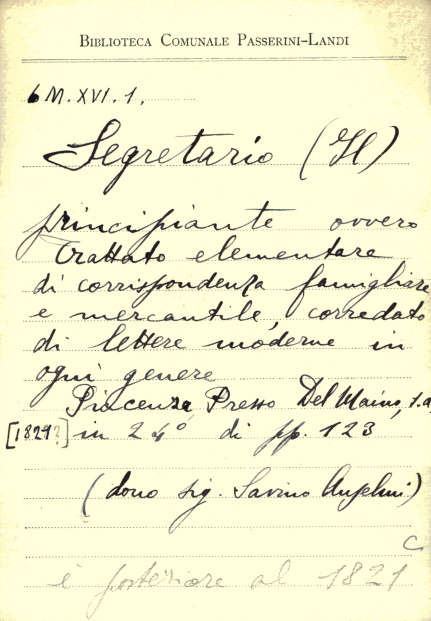 BIBLIOTECA COMUNALE PASSERINI-LANDI
6 M. XVI. 1.
Segretario (Il)
principiante ovvero
trattato elementare
di corrispondenza famigliare
e mercantile, corredato
di lettere moderne in
ogni genere
Piacenza, Presso Del Maino, s.a.
[1829?] in 24° di pp. 123
(dono sig. Savino Anselmi)
C
è posteriore al 1821